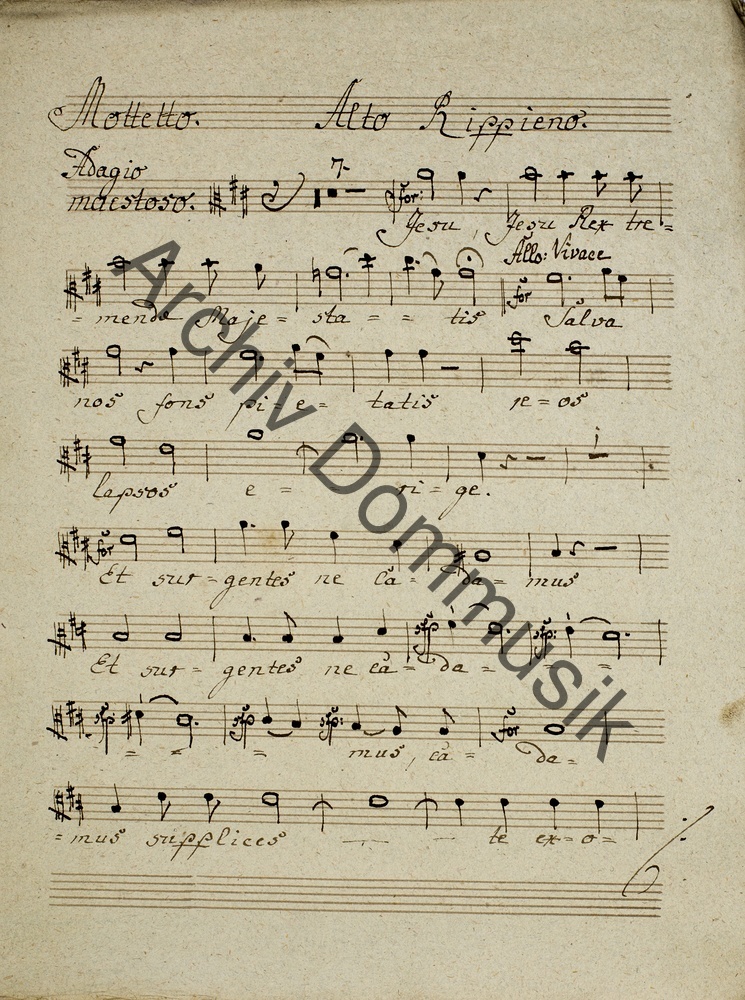 Mottetto. Alto Rippieno.
Adagio
maestoso. 7. for:
Jesu, Jesu Rex tre=
Allo: Vivace
for
=mendae Maje= sta = = tis Salva
nos fons pi=e= tatis re=os
1
lapsos e = ri=ge.
for
Et sur=gentes ne ca= da= mus
sfp sfp:
Et sur= gentes ne ca= da = = =
sfp sfp sfp: for
= = = mus, ca= da=
=mus supplices — — te ex=o=
Archiv Dommusik